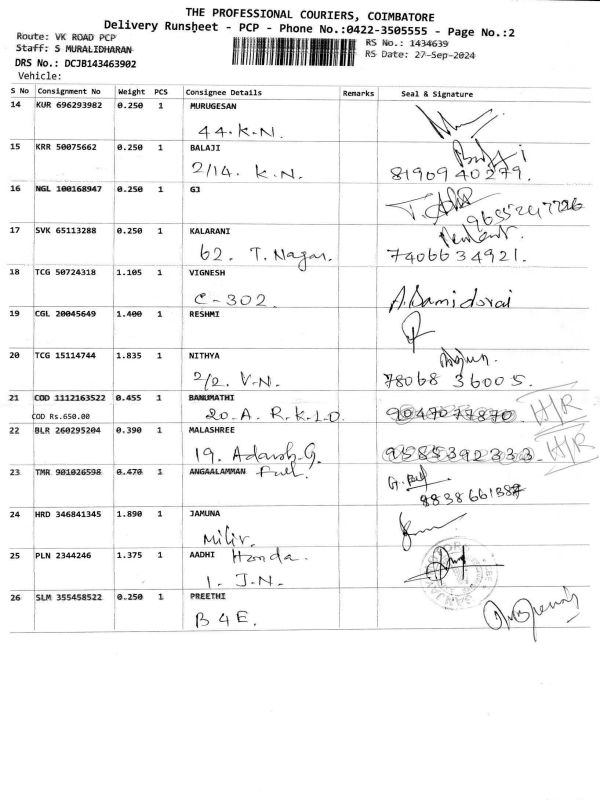 THE PROFESSIONAL COURIERS, COIMBATORE
Delivery Runsheet - PCP - Phone No.:0422-3505555 - Page No.:2
Route: VK ROAD PCP
RS No.: 1434639
Staff: S MURALIDHARAN
RS Date: 27-Sep-2024
DRS No.: DCJB143463902
Vehicle:
S No Consignment No Weight PCS Consignee Details Remarks Seal & Signature
14 KUR 696293982 0.250 1 MURUGESAN
44. K.N.
15 KRR 50075662 0.250 1 BALAJI
2/14. K.N. 8190940279.
16 NGL 100168947 0.250 1 GJ
17 SVK 65113288 0.250 1 KALARANI
62. T. Nagar. 7406634921.
18 TCG 50724318 1.105 1 VIGNESH
C-302. A. Damidorai
19 CGL 20045649 1.400 1 RESHMI
20 TCG 15114744 1.835 1 NITHYA
2/2. V.N. 78068 36005.
21 COD 1112163522 0.455 1 BANUMATHI
COD Rs.650.00 20. A. R.K.L.D. 9047077870. H/R
22 BLR 260295204 0.390 1 MALASHREE
19. Adarsh.G. 9585392333. H/R
23 TMR 901026598 0.470 1 ANGAALAMMAN Fuel.
24 HRD 346841345 1.890 1 JAMUNA
25 PLN 2344246 1.375 1 AADHI Honda.
1. J.N.
26 SLM 355458522 0.250 1 PREETHI
B 4 E.